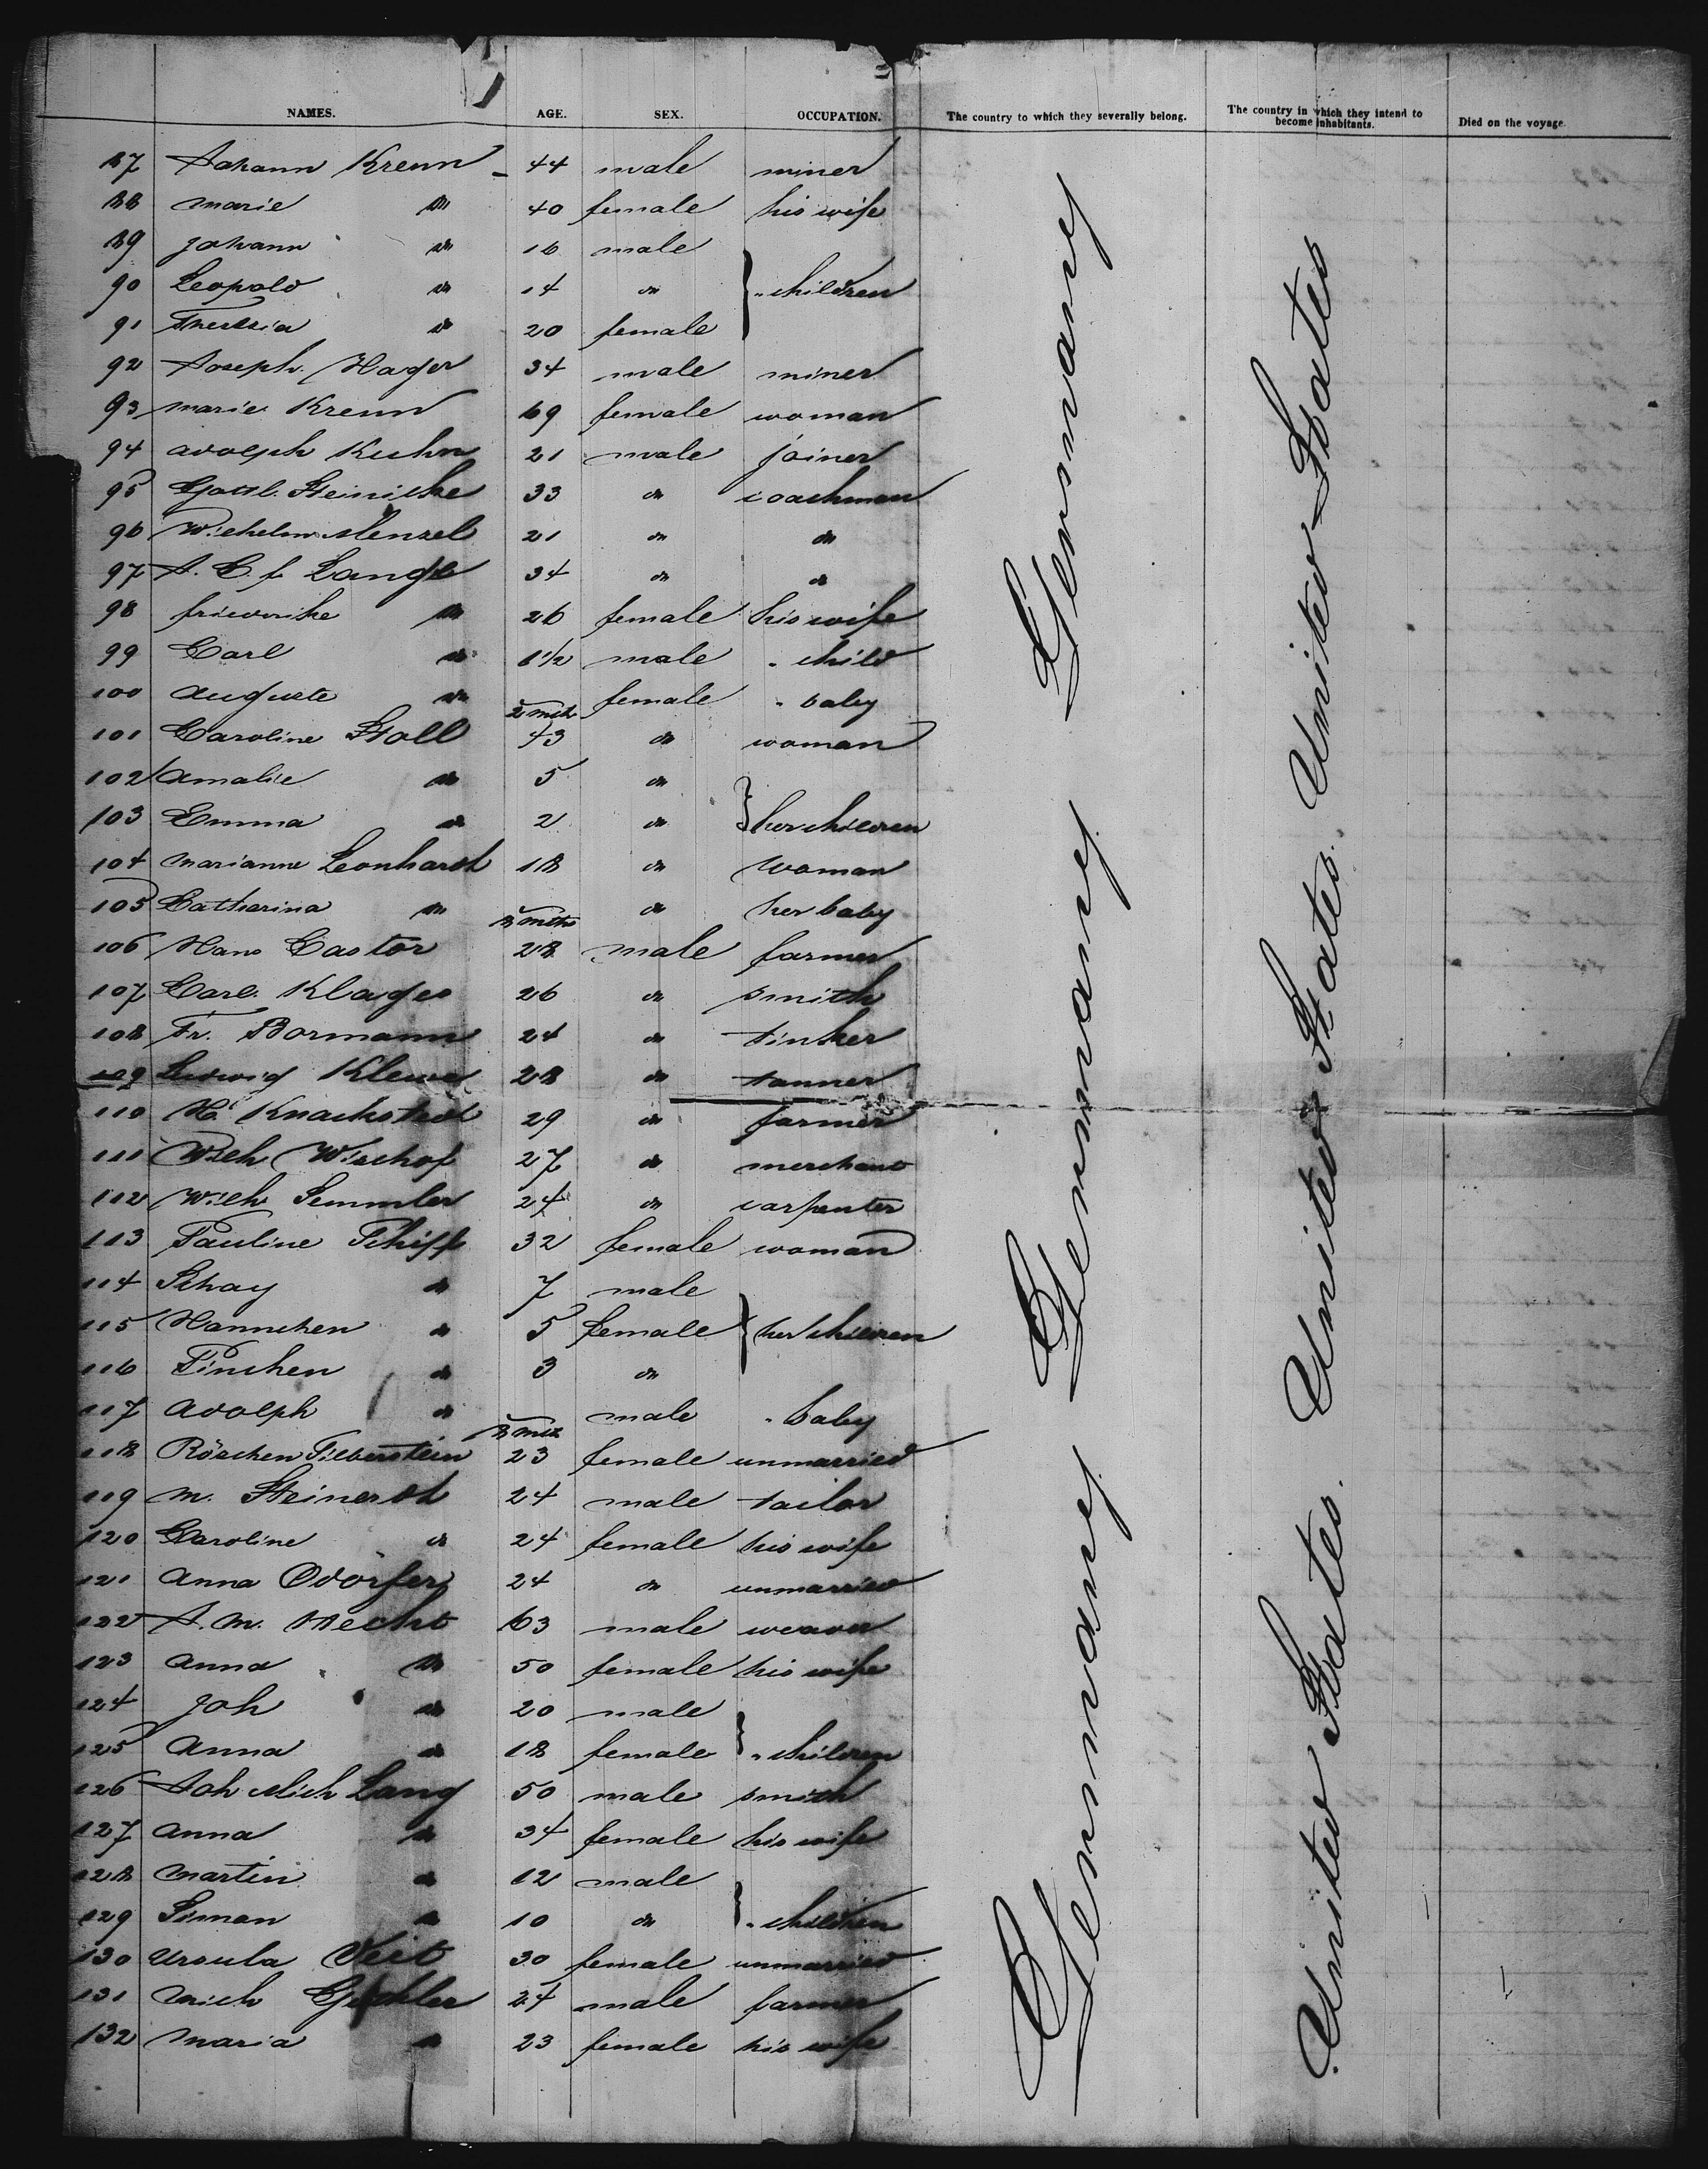 NAMES. AGE. SEX. OCCUPATION. The country to which they severally belong. The country in which they intend to become inhabitants. Died on the voyage.
87 Johann Krenn 44 male miner
88 Marie do 40 female his wife
89 Johann do 16 male
90 Leopold do 14 do " children
91 Theresia do 20 female
92 Joseph Hager 34 male miner
93 Marie Krenn 69 female woman
94 Adolph Kuhn 21 male joiner
95 Gottl. Steinicke 33 do coachman
96 Wilhelm Menzel 21 do do
97 J. C. F. Lange 34 do do
98 Friederike do 26 female his wife
99 Carl do 1 1/2 male " child
100 Auguste do 2 mth female " baby
101 Caroline Stoll 43 do woman
102 Amalie do 5 do
103 Emma do 2 do her children
104 Marianne Leonhardt 18 do woman
105 Catharina do 8 mths do her baby
106 Hans Castor 28 male farmer
107 Carl Klages 26 do smith
108 Fr. Bormann 24 do tinker
109 Ludwig 28 do tanner
110 H. Knackstedt 29 do farmer
111 Wilh Wischof 27 do merchant
112 Wilh Semmler 24 do carpenter
113 Pauline Schiff 32 female woman
114 Schay do 7 male
115 Hannchen do 5 female her children
116 Pinchen do 3 do
117 Adolph do 8 mth male " baby
118 Röschen Silberstein 23 female unmarried
119 M. Steinerdt 24 male tailor
120 Caroline do 24 female his wife
121 Anna Odörfer 24 do unmarried
122 J. M. Hecht 63 male weaver
123 Anna do 50 female his wife
124 Joh do 20 male
125 Anna do 18 female " children
126 Joh Mich Lang 50 male smith
127 Anna do 34 female his wife
128 Martin do 12 male
129 Simon do 10 do " children
130 Ursula Veit 30 female unmarried
131 Mich 24 male farmer
132 Maria do 23 female his wife
Germany Germany Germany
United States. United States. United States